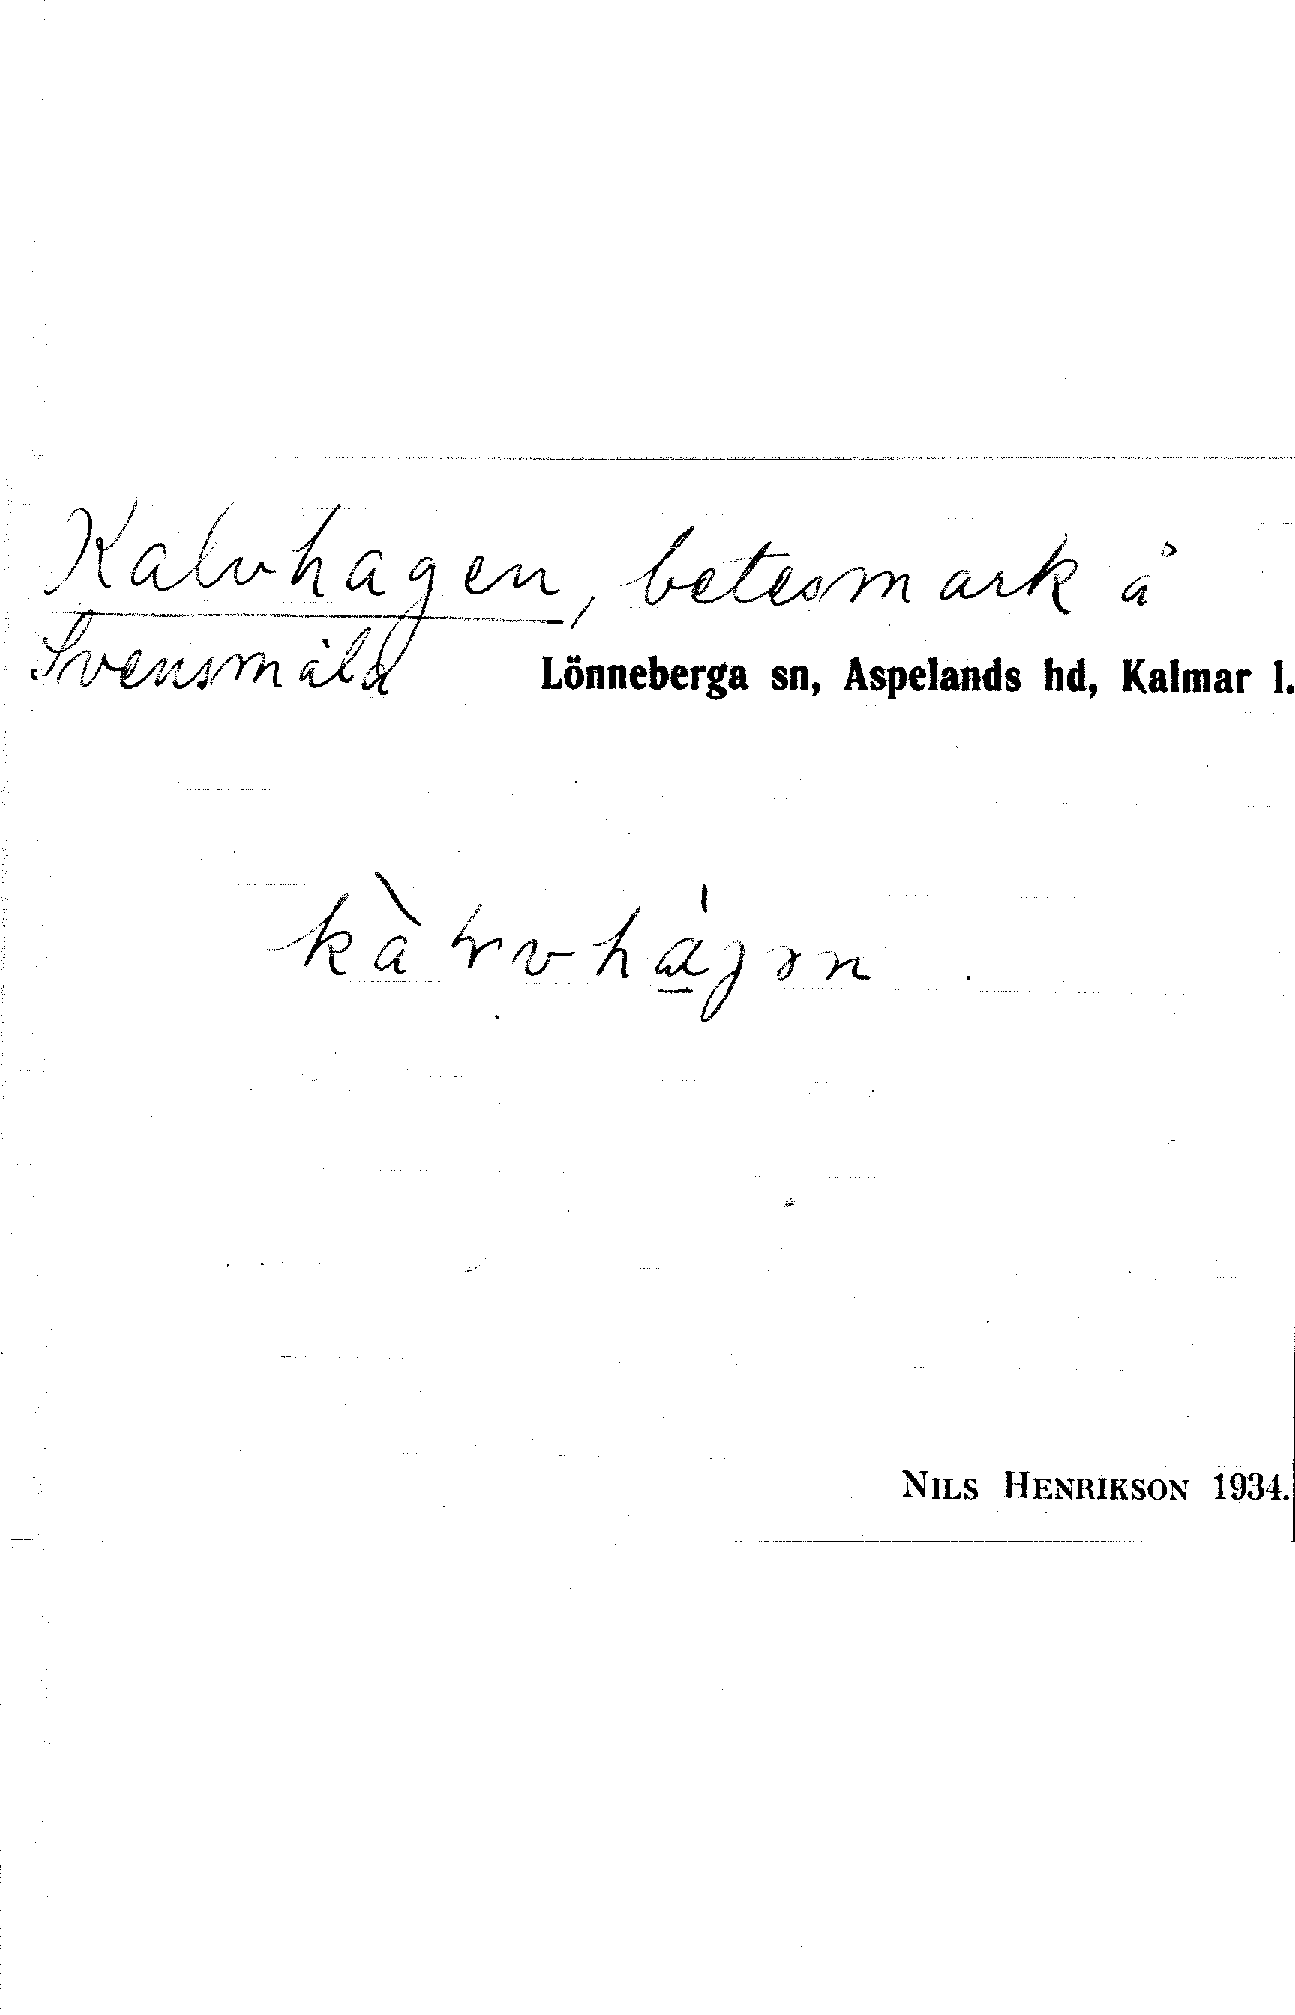 Kalvhagen, betesmark å
Svensmåla Lönneberga sn, Aspelands hd, Kalmar l.
NILS HENRIKSON 1934.